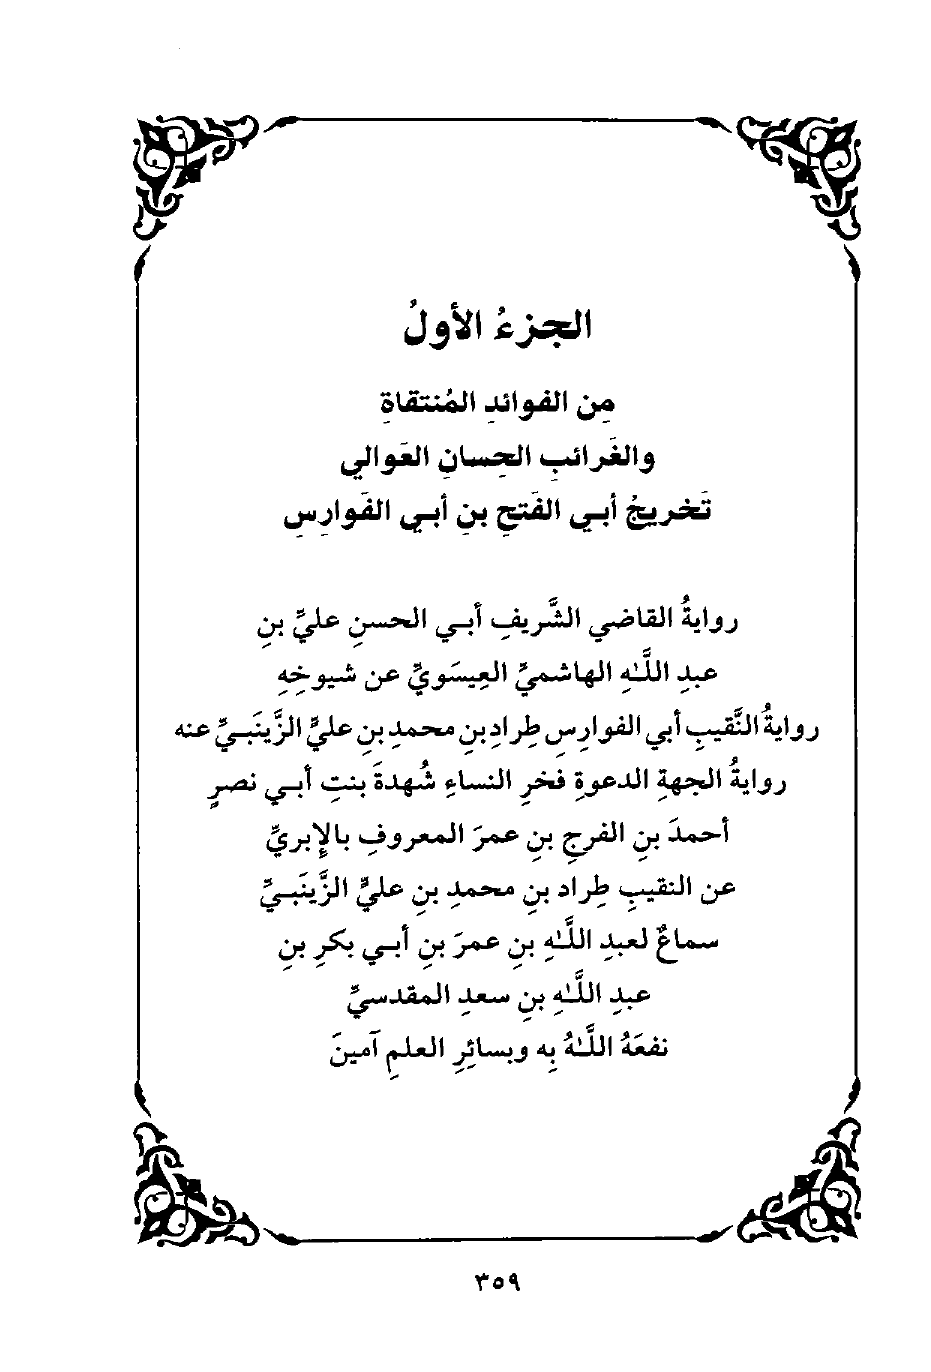 الجزءُ الأولُ
مِن الفوائدِ المُنتقاةِ
والغَرائبِ الحِسانِ العَوالي
تَخريجُ أبي الفَتحِ بنِ أبي الفَوارِسِ
روايةُ القاضي الشَّريفِ أبي الحسنِ عليِّ بنِ
عبدِ اللَّهِ الهاشميِّ العِيسَويِّ عن شيوخِهِ
روايةُ النَّقيبِ أبي الفوارسِ طِرادِ بنِ محمدِ بنِ عليٍّ الزَّينَبيِّ عنه
روايةُ الجهةِ الدعوةِ فخرِ النساءِ شُهدةَ بنتِ أبي نصرٍ
أحمدَ بنِ الفرجِ بنِ عمرَ المعروفِ بالإِبريِّ
عن النقيبِ طِراد بنِ محمدِ بنِ عليٍّ الزَّينَبيِّ
سماعٌ لعبدِ اللَّهِ بنِ عمرَ بنِ أبي بكرِ بنِ
عبدِ اللَّهِ بنِ سعدِ المقدسيِّ
نفعَهُ اللَّهُ بِه وبسائرِ العلمِ آمينَ
٣٥٩